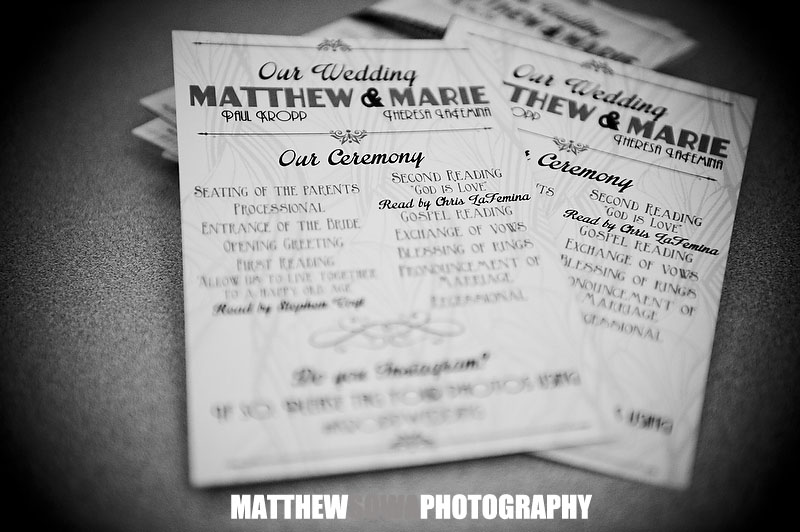 Our Wedding
MATTHEW & MARIE
PAUL KROPP THERESA LAFEMINA
Our Ceremony
SEATING OF THE PARENTS
PROCESSIONAL
ENTRANCE OF THE BRIDE
OPENING GREETING
FIRST READING
ALLOW US TO LIVE TOGETHER
TO A HAPPY OLD AGE
Read by Stephen
SECOND READING
"GOD IS LOVE"
Read by Chris LaFemina
GOSPEL READING
EXCHANGE OF VOWS
BLESSING OF RINGS
PRONOUNCEMENT OF
MARRIAGE
RECESSIONAL
Do you Instagram?
IF SO, PLEASE TAG YOUR PHOTOS USING
Our Wedding
THEW & MARIE
OPP THERESA LAFEMINA
Ceremony
TS
SECOND READING
"GOD IS LOVE"
Read by Chris LaFemina
GOSPEL READING
EXCHANGE OF VOWS
BLESSING OF RINGS
ONOUNCEMENT OF
MARRIAGE
CESSIONAL
USING
MATTHEW SOWA PHOTOGRAPHY